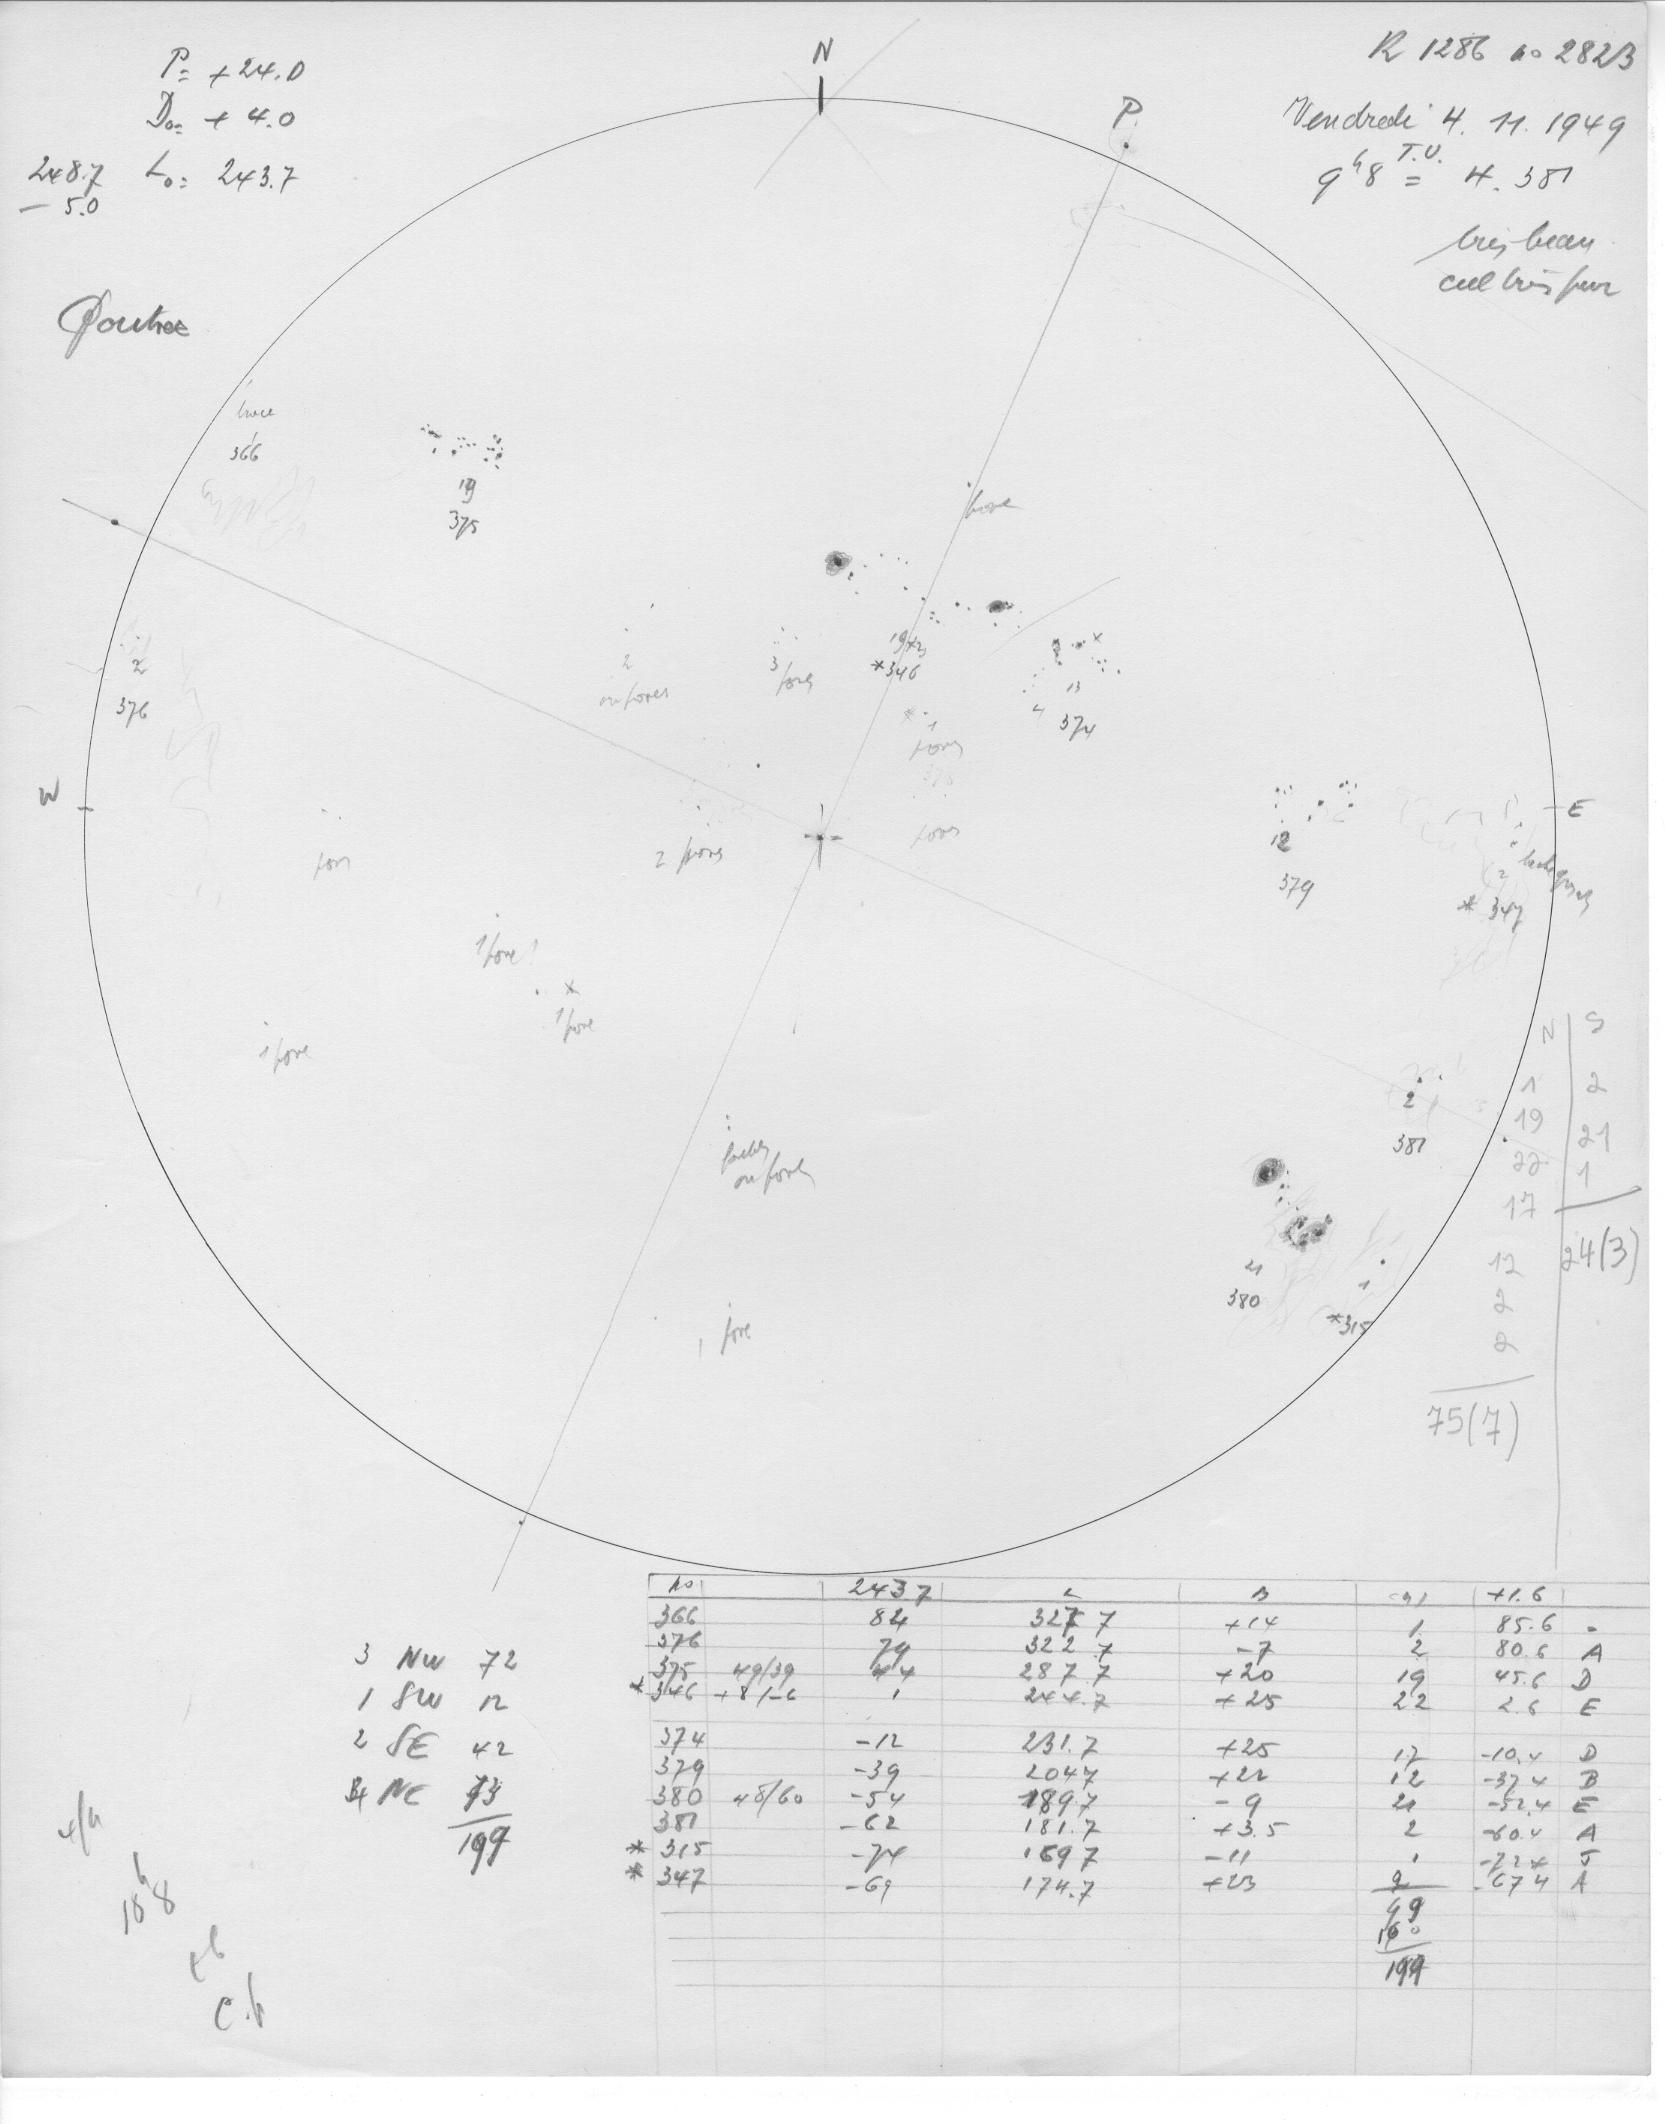 P= +24.0
D₀= + 4.0
248.7 L₀= 243.7
- 5.0
N
P
R 1286 no 2823
Vendredi 4. 11. 1949
9h8 T.U. = 4.381
très beau
ciel très pur
trace
366
19
375
pore
2
376
2
ou pores
3 pores
19+3
*346
13
4
374
1
pores
W
E
pores
2 pores
pore
12
379
2
* 347
1 pore
1 pore
1 pore
ou pores
2
381
21
380
1
*315
1 pore
N S
1 2
19 21
22 1
17 24(3)
12
2
2
75(7)
No 243.7 L B +1.6
366 84 327 7 +14 1 85.6 -
376 79 322 7 -7 2 80.6 A
375 49/39 44 287 7 +20 19 45.6 D
*346 +8/-6 1 244.7 +25 22 2.6 E
374 -12 231.7 +25 17 -10.4 D
379 -39 204 7 +22 12 -37.4 B
380 48/60 -54 189 7 -9 21 -52.4 E
381 -62 181.7 +3.5 2 -60.4 A
* 315 -74 169 7 -11 1 -72.4 J
* 347 -69 174.7 +23 2 -67.4 A
99
100
199
3 NW 72
1 SW 12
2 SE 42
4 NE 73
199